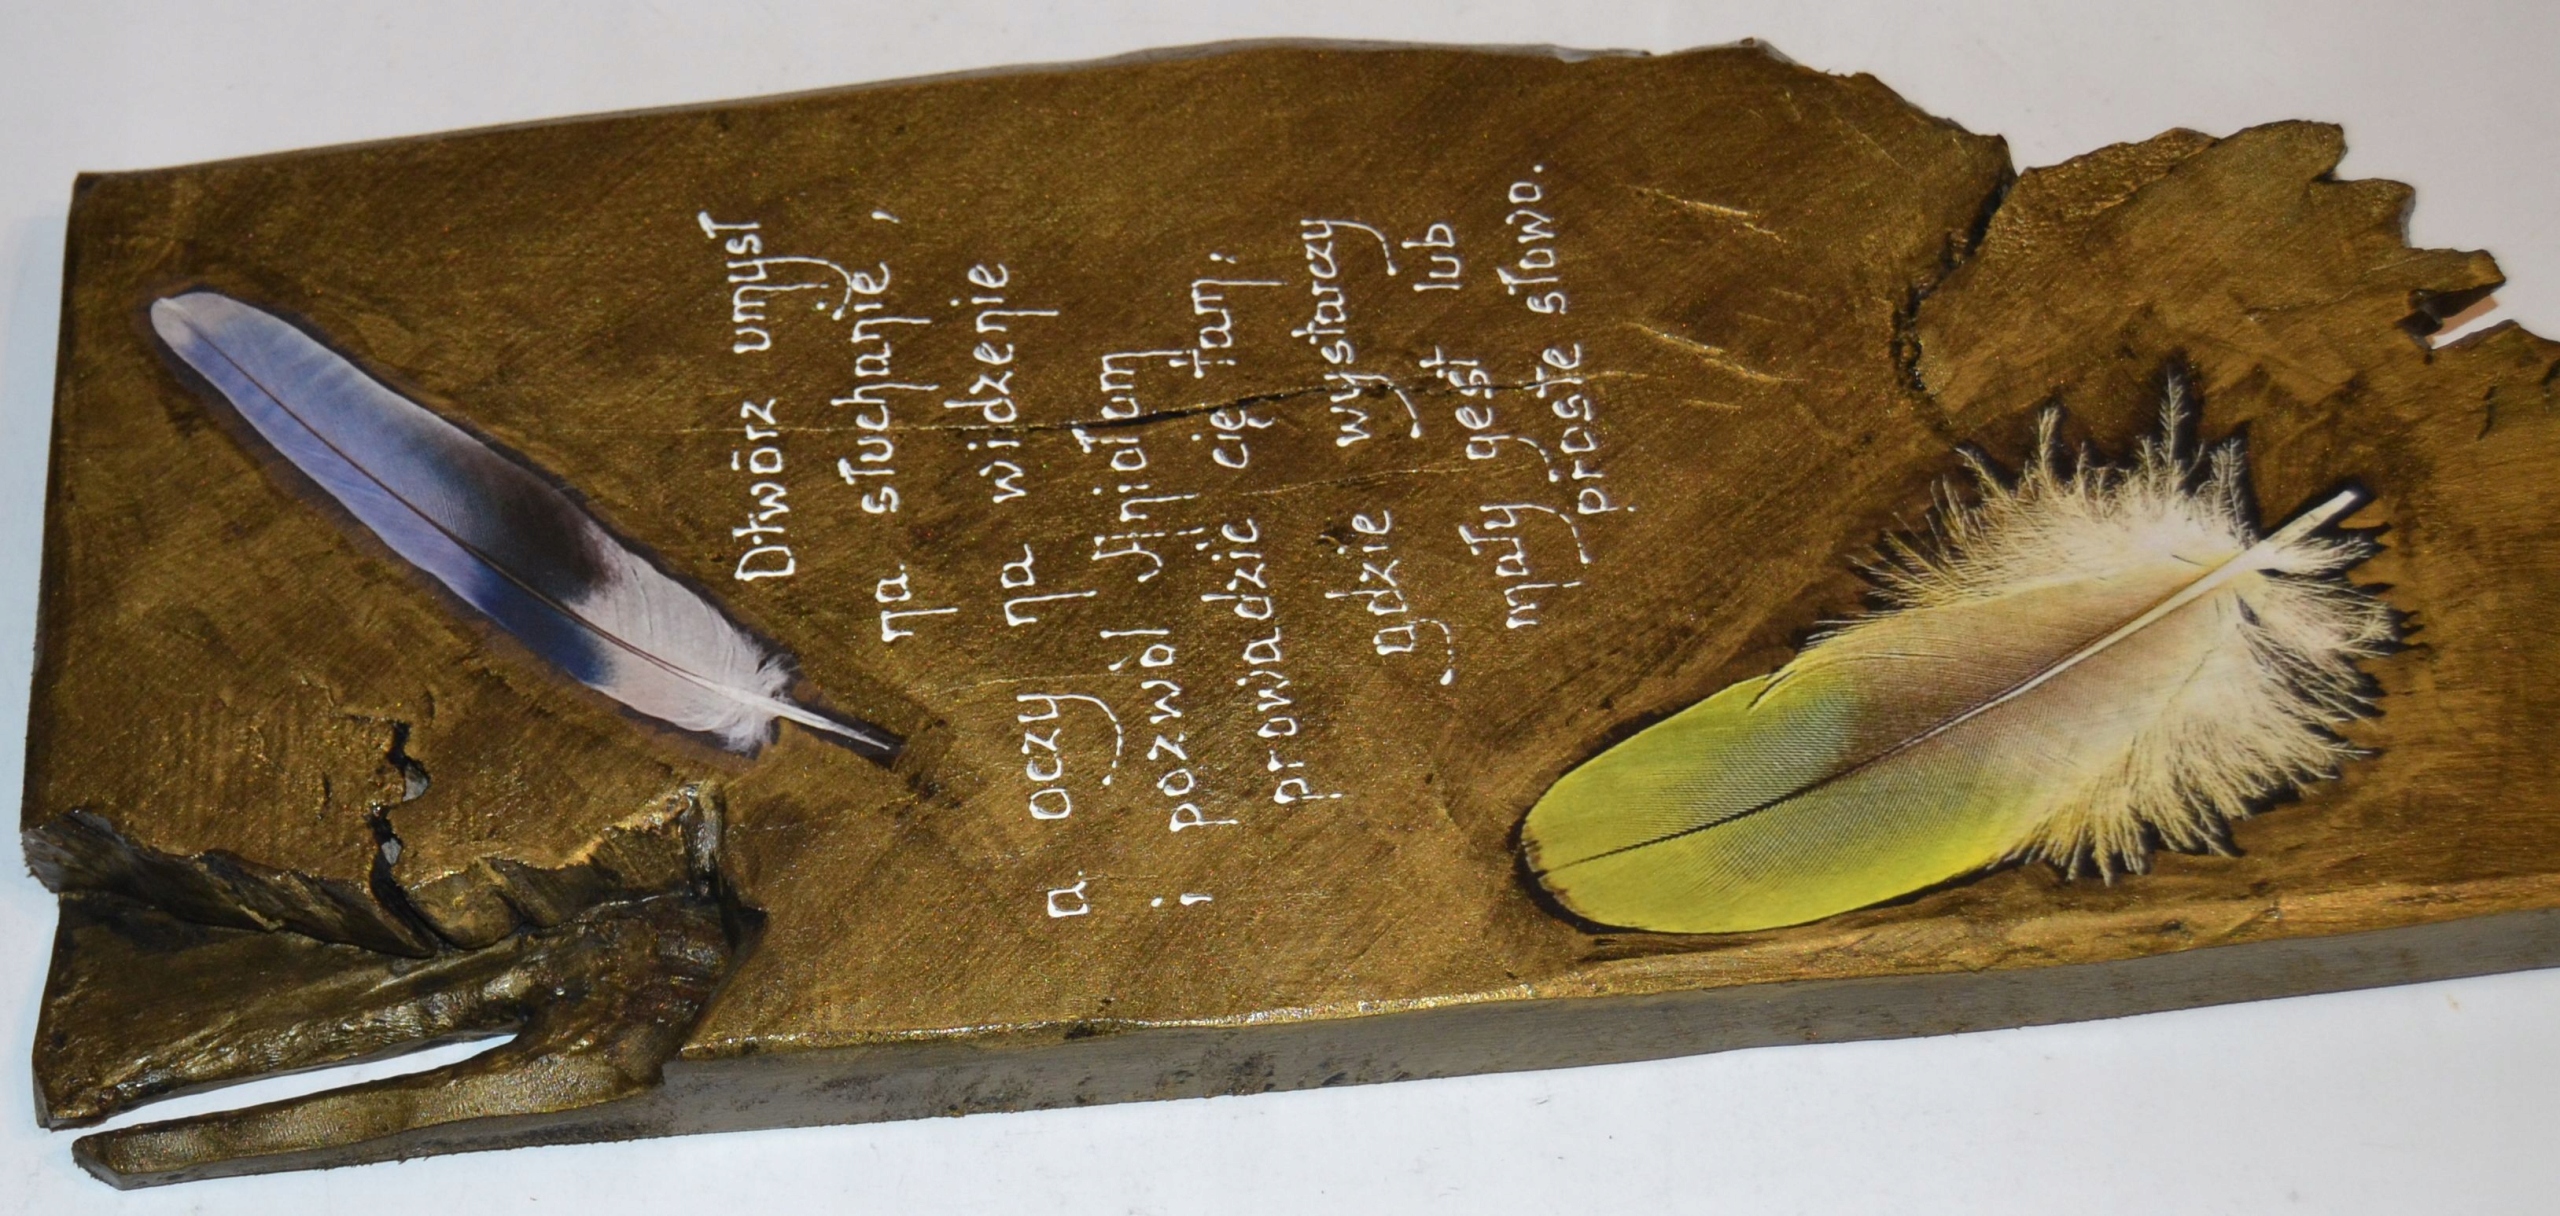 Otwórz umysł
na słuchanie,
a oczy na widzenie
i pozwól Aniołom
prowadzić cię tam;
gdzie wystarczy
mały gest lub
proste słowo.